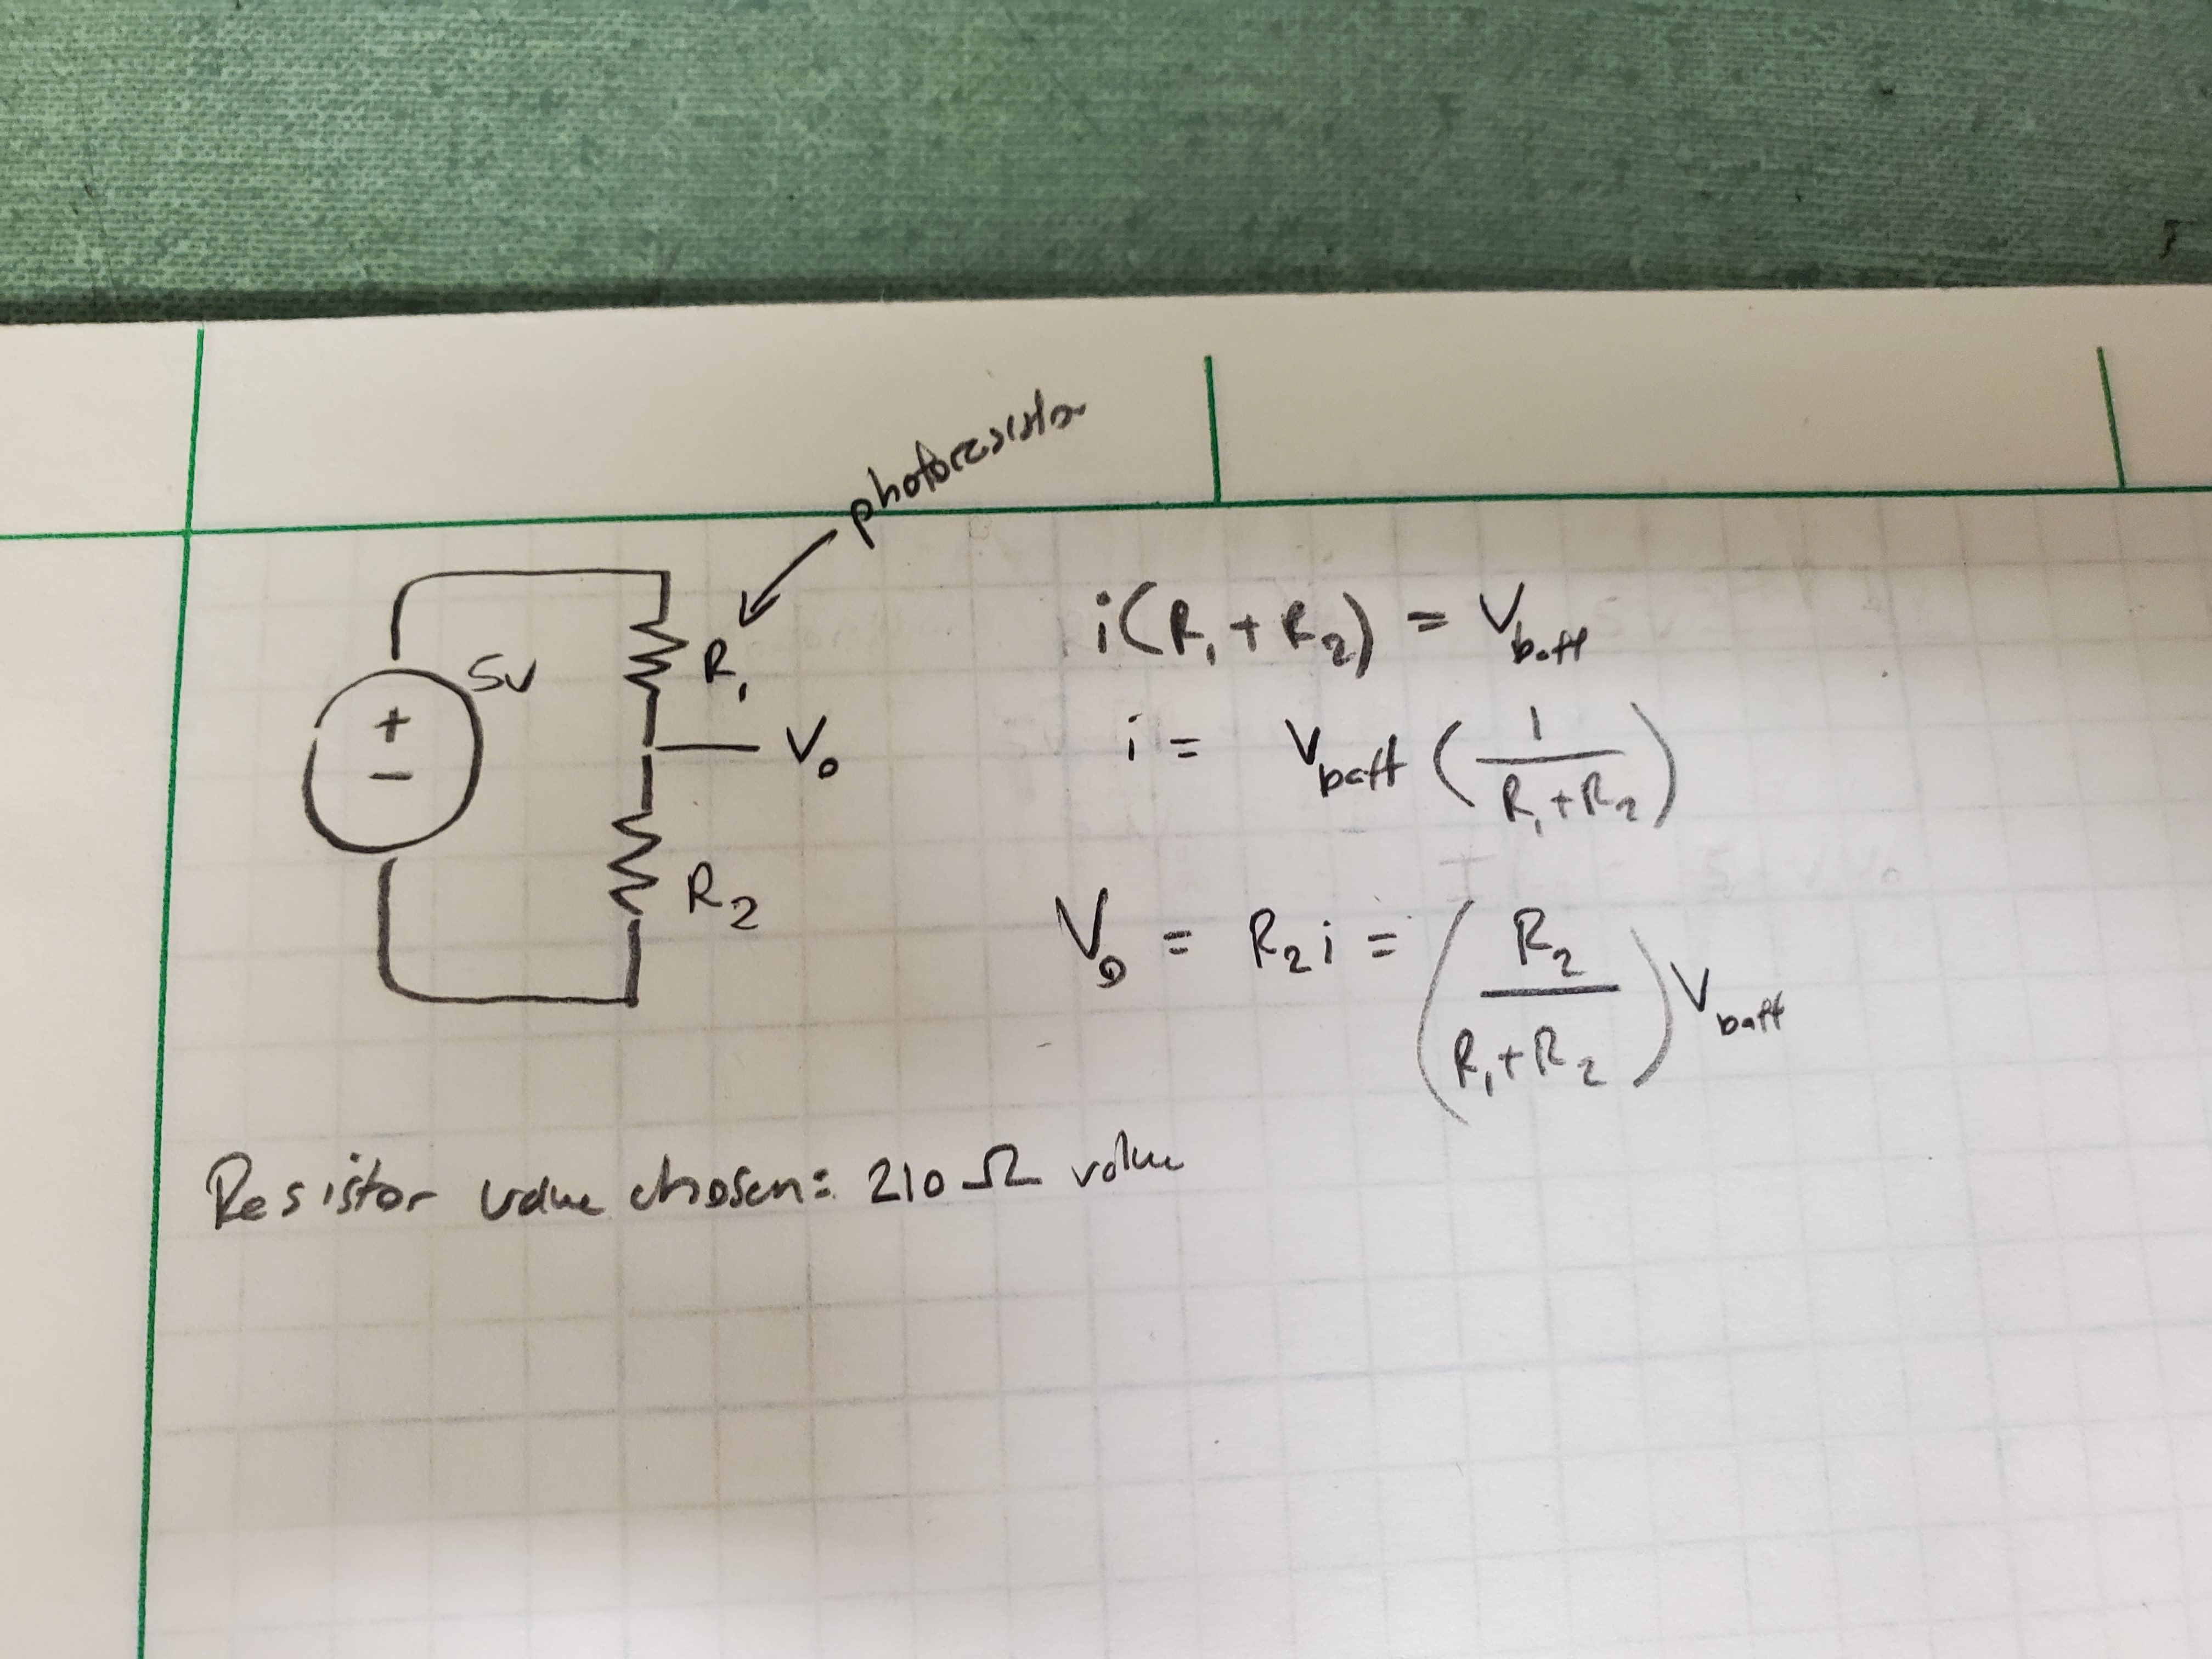 photoresistor
5V
+
-
R₁
V₀
R₂
i(R₁+R₂) = V_batt
i = V_batt (1/(R₁+R₂))
V₀ = R₂i = (R₂/(R₁+R₂)) V_batt
Resistor value chosen: 210 Ω value